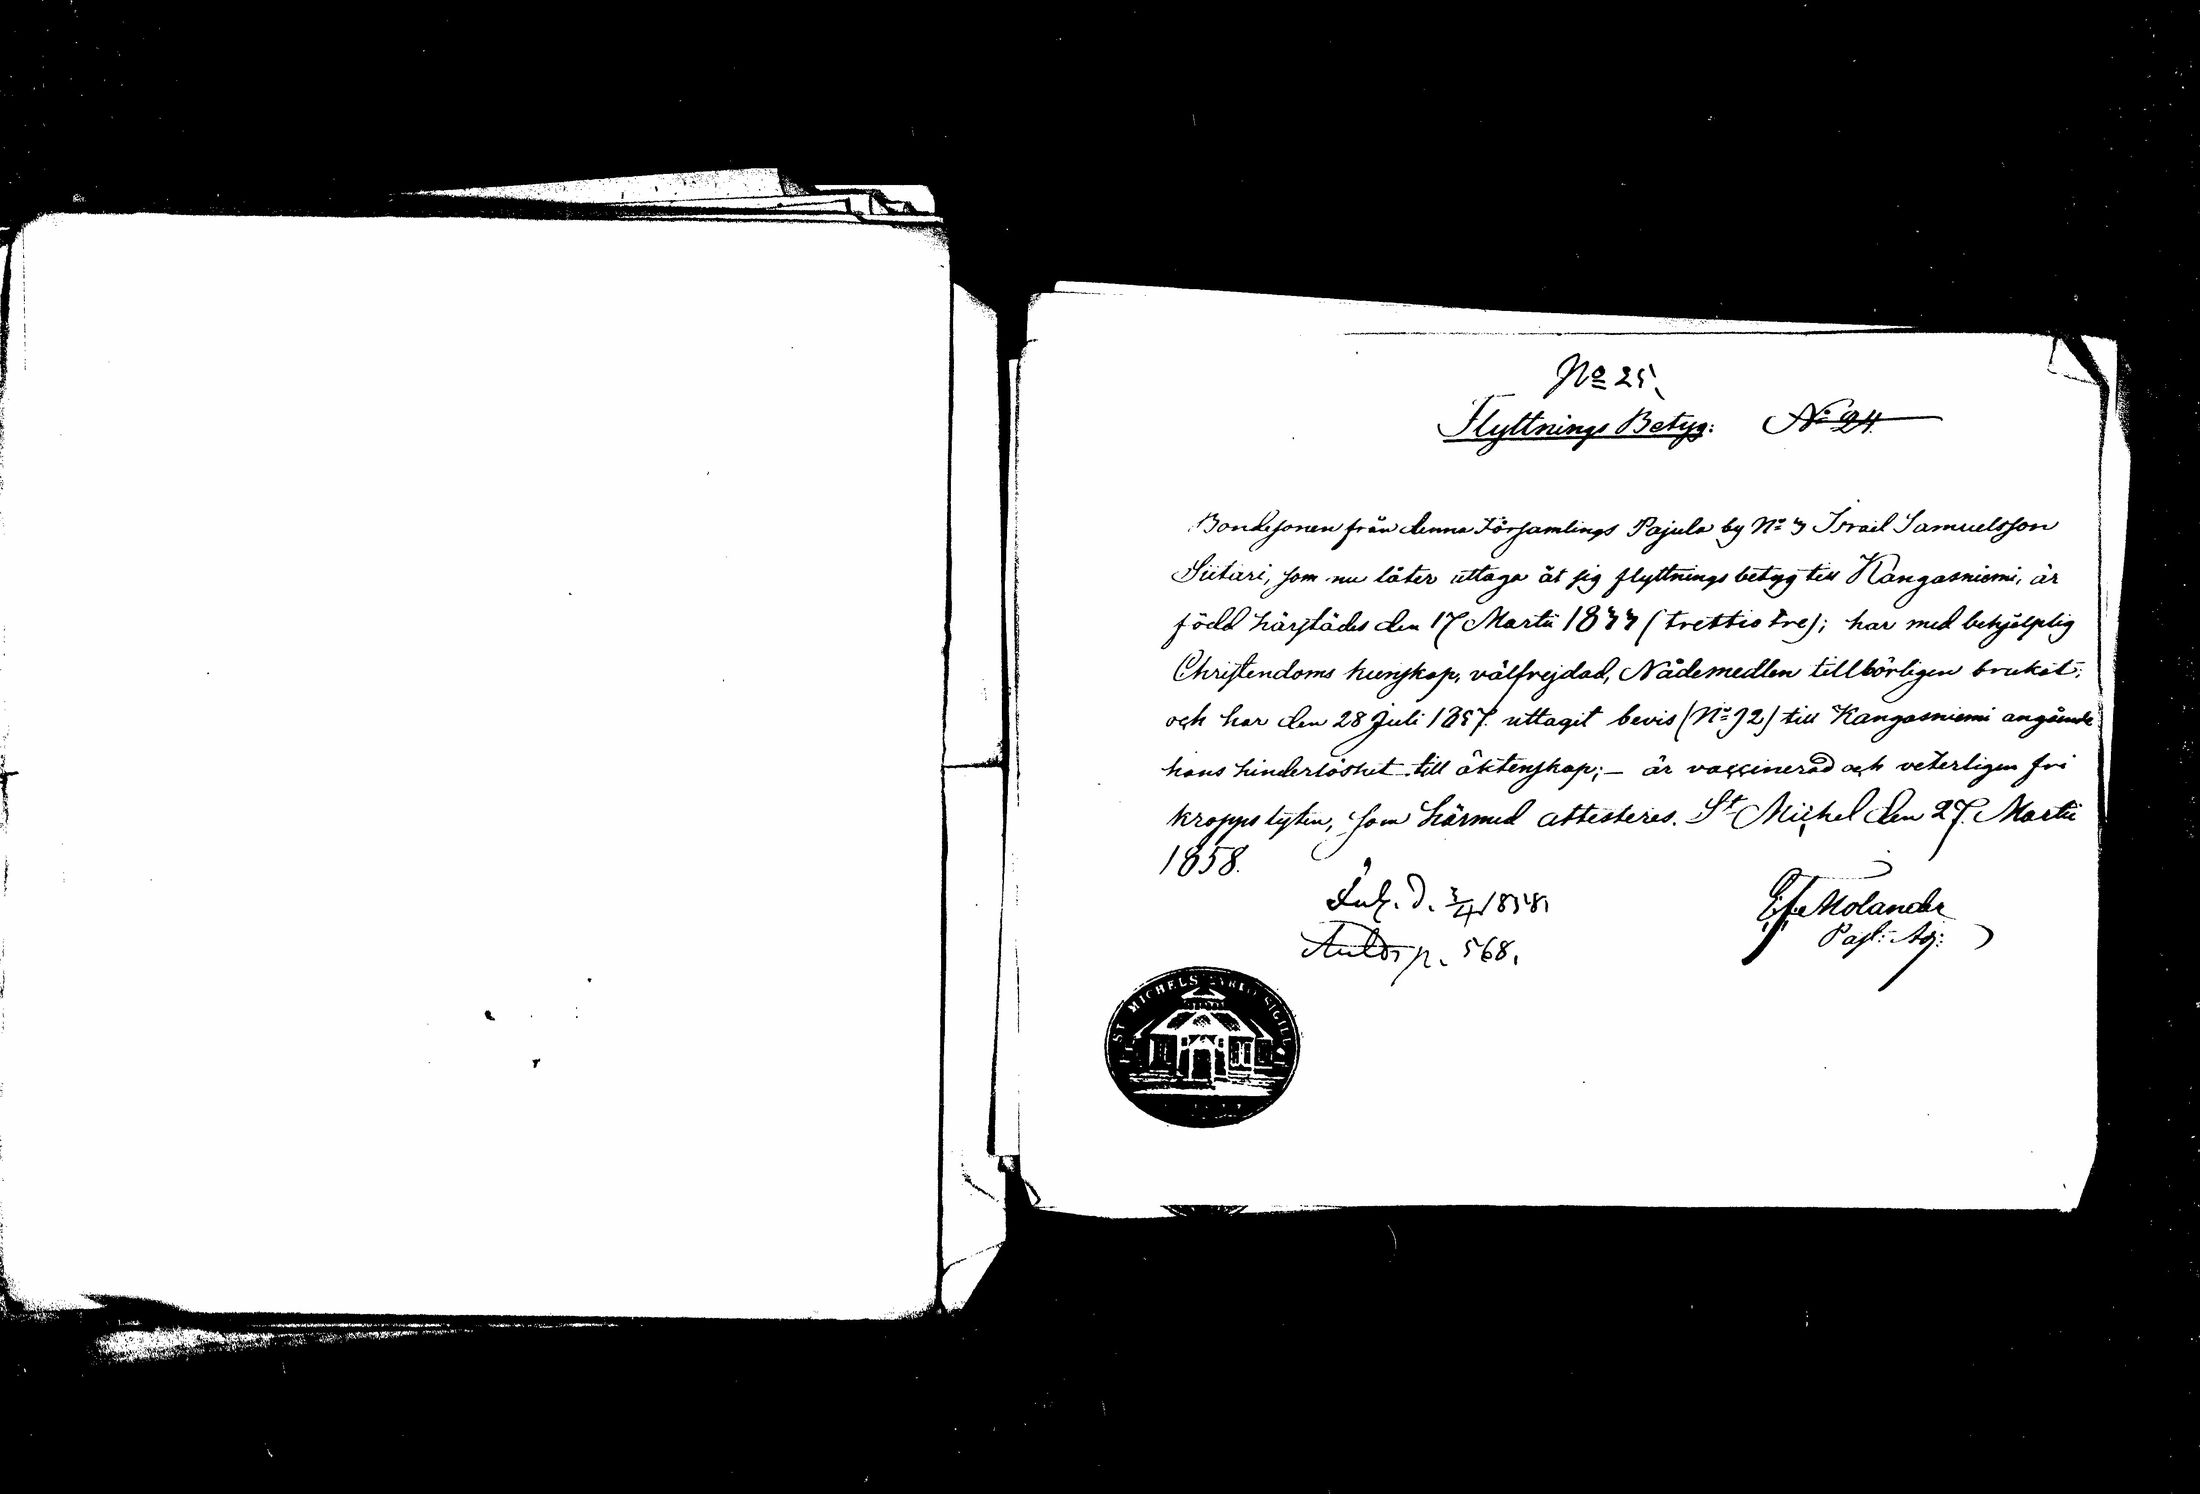 No 25.
Flyttnings Betyg: No 24.
Bondesonen från denna Församlings Pajula by No 3 Israel Samuelsson
Siitari, som nu låter uttaga åt sig flyttningsbetyg till Kangasniemi, är
född härstädes den 17 Martii 1833 (trettio tre); har med behjelplig
Christendoms kunskap, välfrejdad, Nådemedlen tillbörligen brukat;
och har den 28 Juli 1857 uttagit bevis (No 92) till Kangasniemi angående
hans hinderlöshet till äktenskap; – är vaccinerad och veterligen fri
kroppslyten, som härmed attesteras. St Michel den 27 Martii
1858.
Ink. d. 3/4 1858.
p. 568.
Molander
Past: Adj:
ST MICHELS KYRKO SIGILL